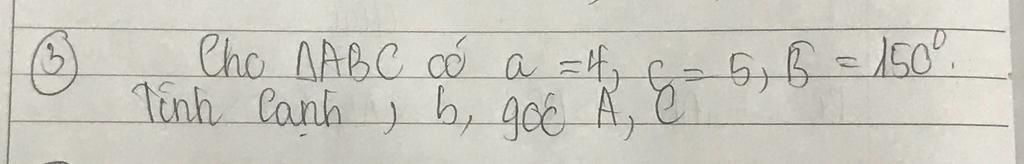 ③ Cho ΔABC có a = 4, c = 5, B̂ = 150⁰.
Tính cạnh, b, góc A, C